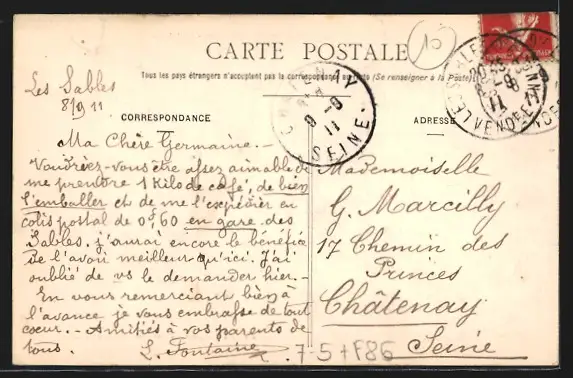 CARTE POSTALE
Tous les pays étrangers n'acceptent pas la correspondance au recto (Se renseigner à la Poste)
10
Les Sables
8/9 11
CORRESPONDANCE
ADRESSE
Ma Chère Germaine. -
Voudriez-vous être assez aimable de
me prendre 1 Kilo de café, de bien
l'emballer et de me l'expédier en
colis postal de 0f,60 en gare des
Sables. j'aurai encore le bénéfice
de l'avoir meilleur qu'ici. J'ai
oublié de vs le demander hier. -
En vous remerciant bien à
l'avance je vous embrasse de tout
coeur. - Amitiés à vos parents de
tous.
L. Fontaine
Mademoiselle
G. Marcilly
17 Chemin des
Princes
Châtenay
Seine
9 - 9
11
SEINE
VENDÉE
7-5+F86